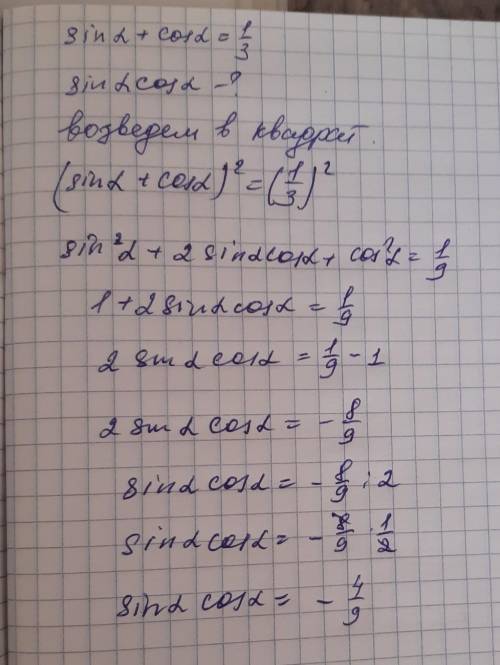 sinα + cosα = 1/3
sinα cosα - ?
возведем в квадрат.
(sinα + cosα)² = (1/3)²
sin²α + 2 sinα cosα + cos²α = 1/9
1 + 2 sinα cosα = 1/9
2 sinα cosα = 1/9 - 1
2 sinα cosα = - 8/9
sinα cosα = - 8/9 : 2
sinα cosα = - 8/9 · 1/2
sinα cosα = - 4/9